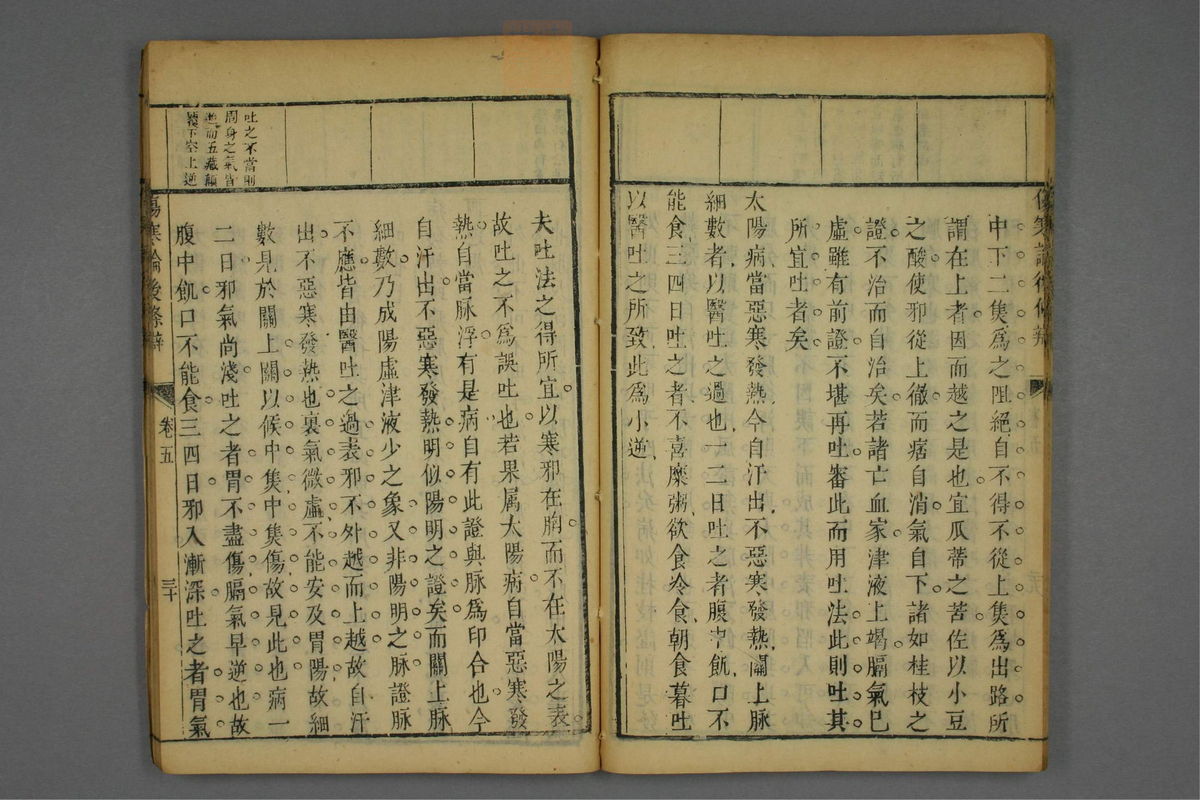 中下二焦爲之阻絕自不得不從上焦爲出路所
謂在上者因而越之是也宜瓜蒂之苦佐以小豆
之酸使邪從上徹而痞自消氣自下諸如桂枝之
證不治而自治矣若諸亡血家津液上竭膈氣已
虛雖有前證不堪再吐審此而用吐法此則吐其
所宜吐者矣
太陽病當惡寒發熱今自汗出不惡寒發熱關上脉
細數者以醫吐之過也一二日吐之者腹中飢口不
能食三四日吐之者不喜糜粥欲食冷食朝食暮吐
以醫吐之所致此爲小逆
傷寒論後條辯
吐之不當則
周身之氣皆
逆而五藏顛
下空上逆
夫吐法之得所宜以寒邪在胸而不在太陽之表
故吐之不爲誤吐也若果属太陽病自當惡寒發
熱自當脉浮有是病自有此證與脉爲印合也今
自汗出不惡寒發熱明似陽明之證矣而關上脉
細數乃成陽虛津液少之象又非陽明之脉證脉
不應皆由醫吐之過表邪不外越而上越故自汗
出不惡寒發熱也裏氣微虛不能安及胃陽故細
數見於關上關以候中焦中焦傷故見此也病一
二日邪氣尚淺吐之者胃不盡傷膈氣早逆也故
腹中飢口不能食三四日邪入漸深吐之者胃氣
傷寒論後條辯
卷五
三十